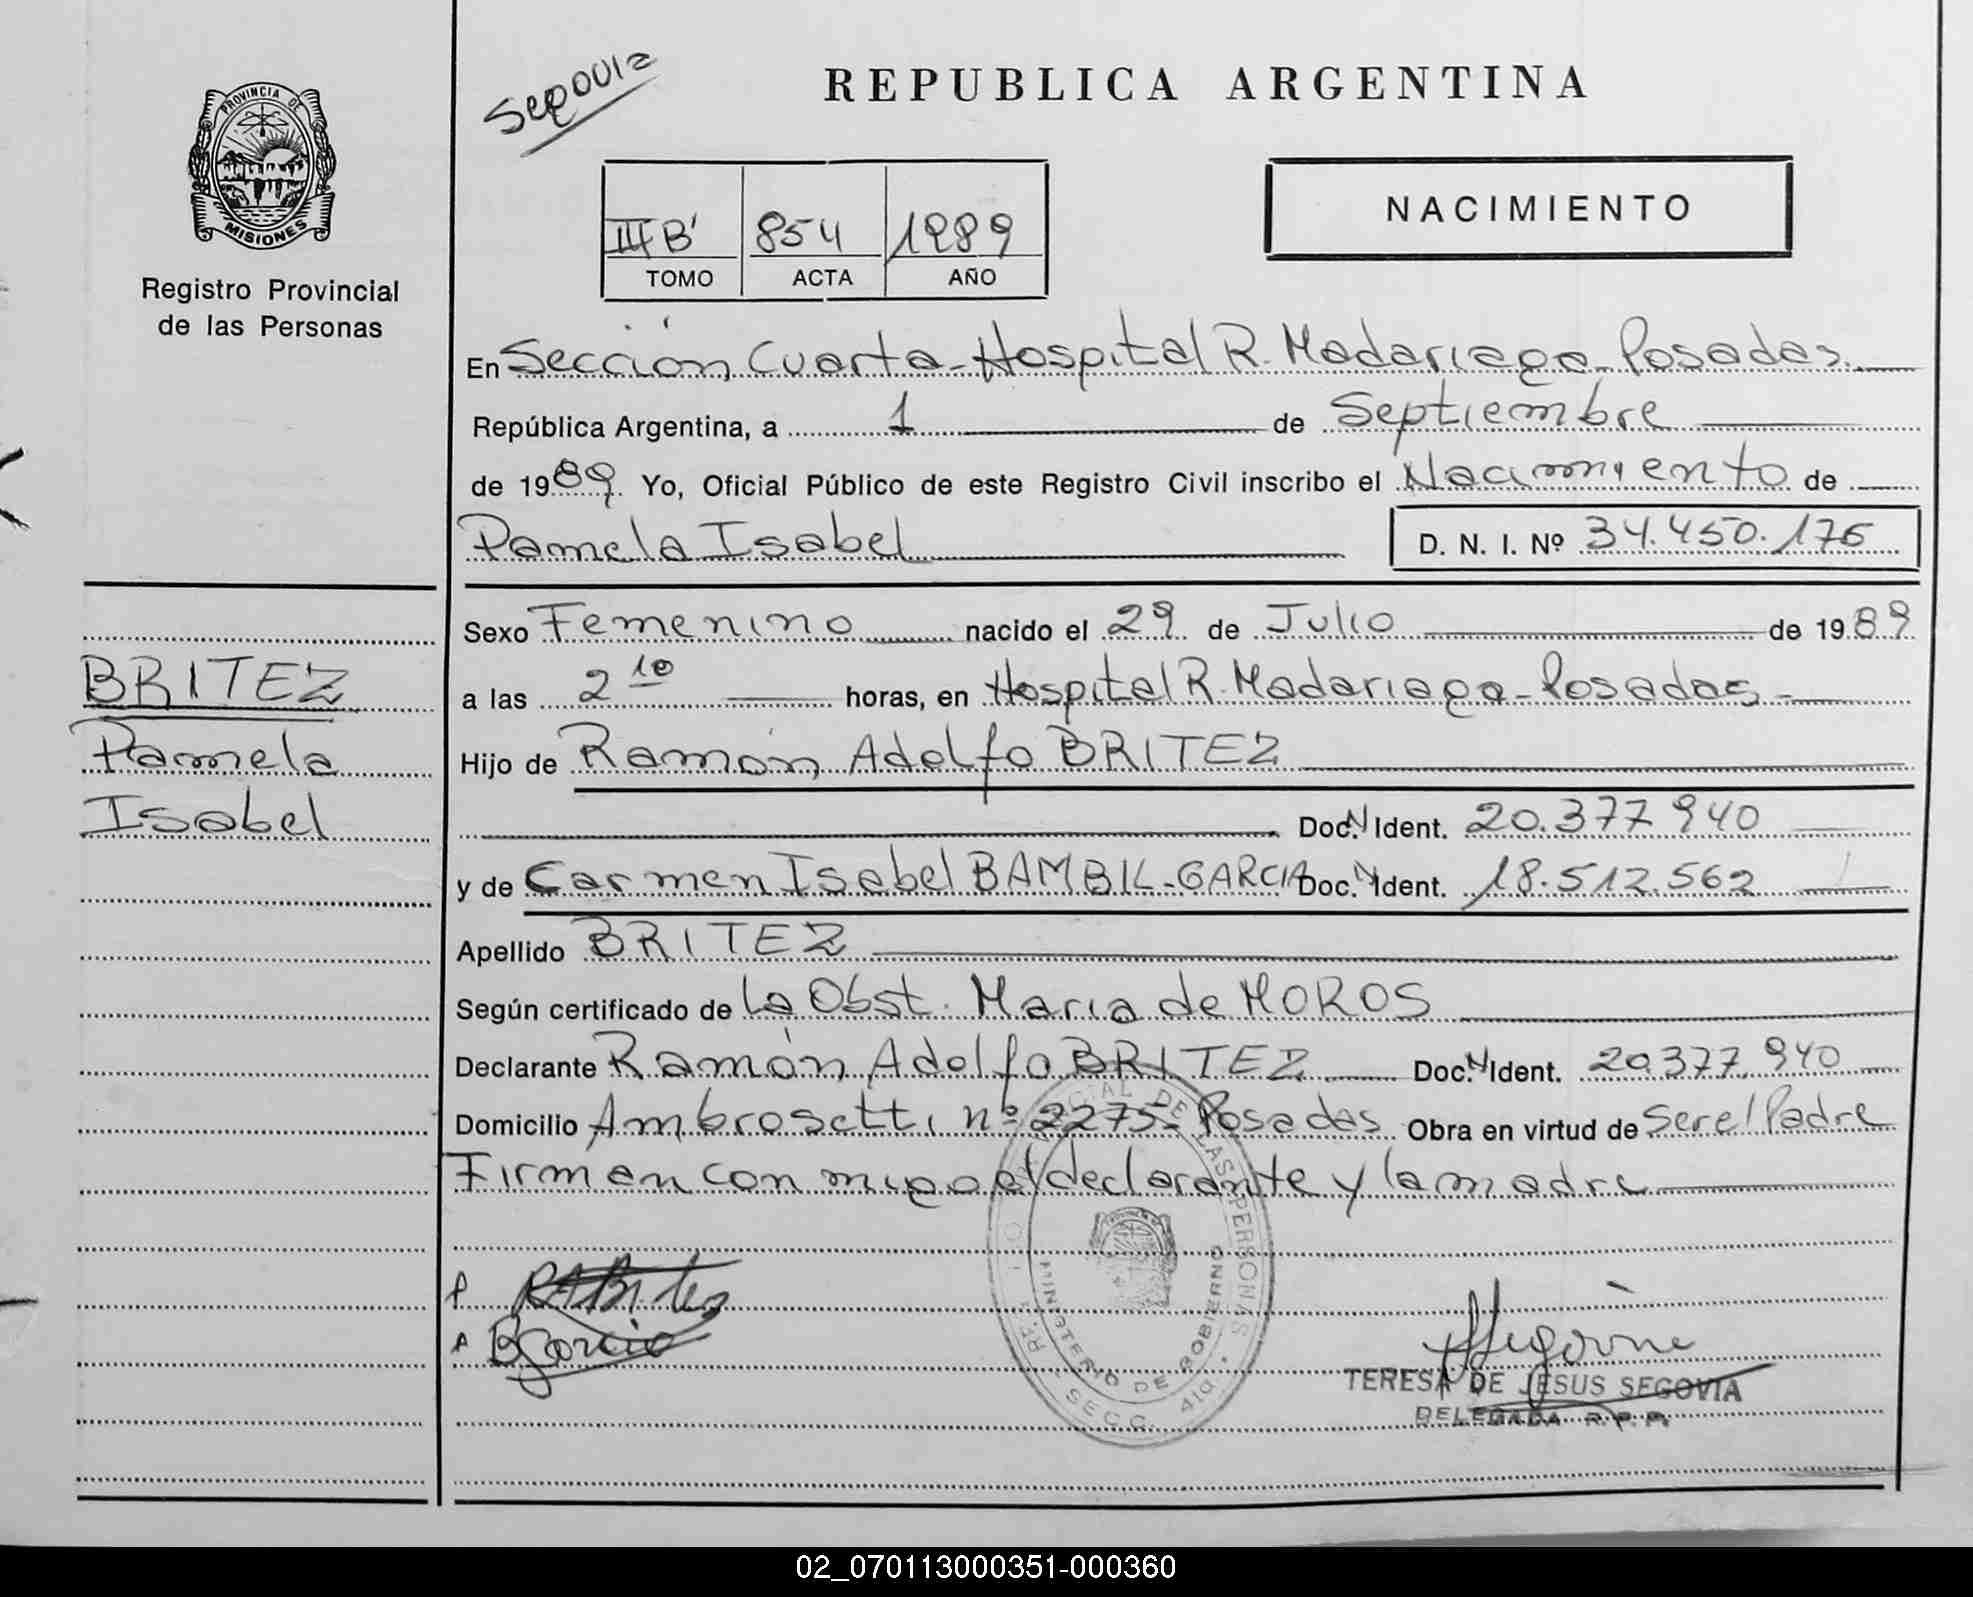 Segovia
REPUBLICA ARGENTINA
PROVINCIA DE
MISIONES
Registro Provincial
de las Personas
III B' 854 1989
TOMO ACTA AÑO
NACIMIENTO
En Sección Cuarta - Hospital R. Madariaga - Posadas
República Argentina, a 1 de Septiembre
de 1989 Yo, Oficial Público de este Registro Civil inscribo el Nacimiento de
Pamela Isabel D. N. I. Nº 34.450.176
Sexo Femenino nacido el 29 de Julio de 1989
a las 2 10 horas, en Hospital R. Madariaga - Posadas -
Hijo de Ramón Adolfo BRITEZ
Doc. N Ident. 20.377.940
y de Carmen Isabel BAMBIL - GARCIA Doc. N Ident. 18.512.562
Apellido BRITEZ
Según certificado de la Obst. Maria de MOROS
Declarante Ramón Adolfo BRITEZ Doc. N Ident. 20.377.940
Domicilio Ambrosetti nº 2275 - Posadas Obra en virtud de Ser el Padre
Firman con migo el declarante y la madre
BRITEZ
Pamela
Isabel
RABritez
BGarcia
LAS PERSONAS
MINISTERIO DE GOBIERNO
SECC. 4ta
Segovia
TERESA DE JESUS SEGOVIA
DELEGADA R. P. P.
02_070113000351-000360